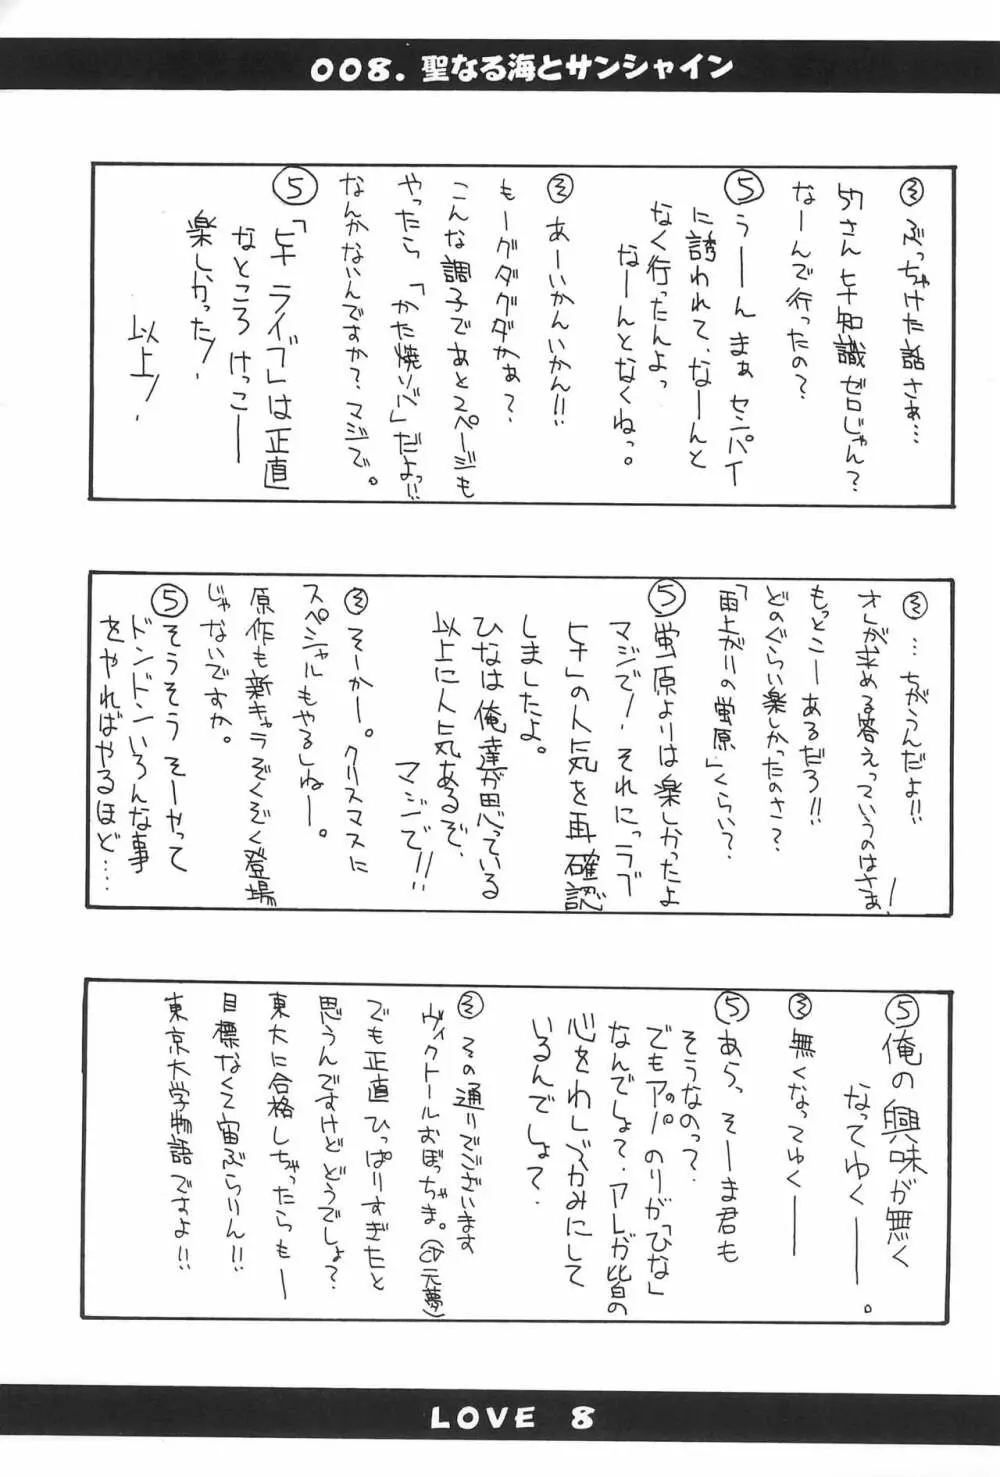 008. 聖なる海とサンシャイン
そ ぶっちゃけた話さぁ…
57さん ヒナ知識ゼロじゃん?
なーんで行ったの?
5 うーん まぁ センパイ
に誘われて、なーんと
なく行ったんよっ
なーんとなくねっ。
そ あーいかんいかん!!
もーグダグダかぁ?
こんな調子であと2ページも
やったら 「かた焼ソバ」だよっ!!
なんかないんですか? マジで。
5 「ヒナ ライブ」は正直
なところ けっこー
楽しかった!
以上!
そ …ちがうんだよ!!
オレが求める答えっていうのはさぁ!
もっとこーあるだろ!!
どのぐらい楽しかったのさ?
「雨上がりの蛍原」くらい?
5 蛍原よりは楽しかったよ
マジで! それに「ラブ
ヒナ」の人気を再確認
しましたよ。
ひなは俺達が思っている
以上に人気あるぞ、
マジで!!
そ そーかー。クリスマスに
スペシャルもやるしねー。
原作も新キャラぞくぞく登場
じゃないですか。
5 そうそう そーやって
ドンドンいろんな事
をやればやるほど……
5 俺の興味が無く
なってゆくー。
そ 無くなってゆくー
5 あら、そーま君も
そうなのっ?
でもアノノリが「ひな」
なんでしょ?アレが皆の
心をわしづかみにして
いるんでしょ?
そ その通りでございます
ヴィクトールおぼっちゃま。(元夢)
でも正直ひっぱりすぎたと
思うんですけどどうでしょ?
東大に合格しちゃったらもー
目標なくて宙ぶらりん!!
東京大学物語ですよ!!
LOVE 8